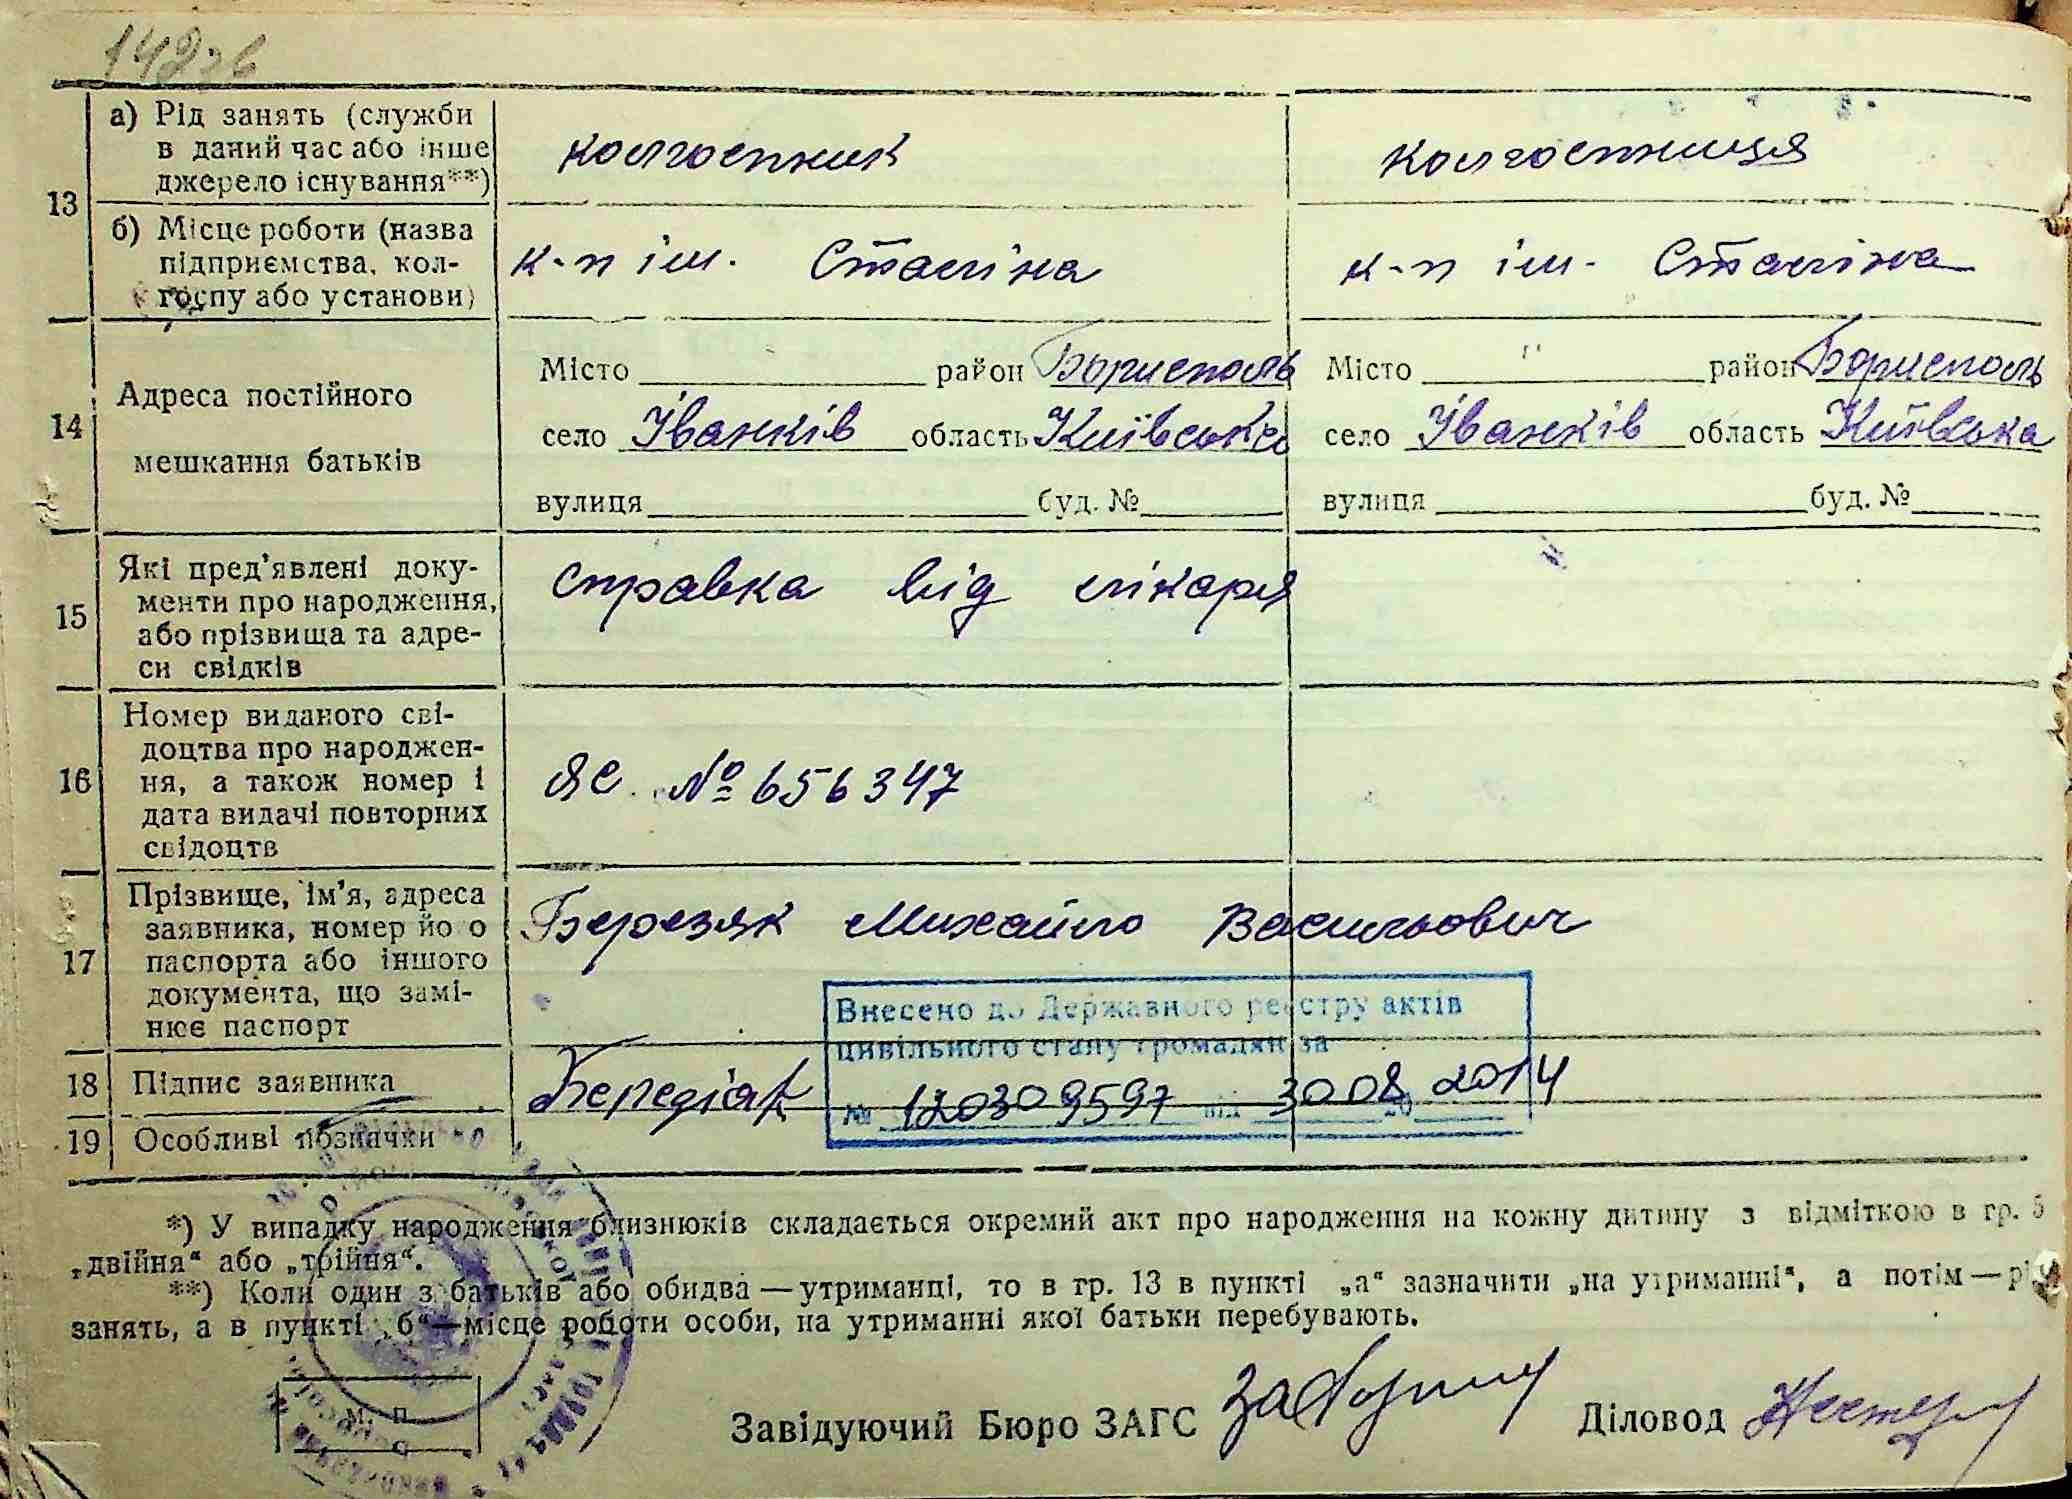 148зв
13
а) Рід занять (служби
в даний час або інше
джерело існування**)
колгоспник
колгоспниця
б) Місце роботи (назва
підприємства, кол-
госпу або установи)
к-п ім. Сталіна
к-п ім. Сталіна
14
Адреса постійного
мешкання батьків
Місто район Бориспель
село Іванків область Київська
вулиця буд. №
Місто район Бориспель
село Іванків область Київська
вулиця буд. №
15
Які пред'явлені доку-
менти про народження,
або прізвища та адре-
си свідків
справка від лікаря
16
Номер виданого сві-
доцтва про народжен-
ня, а також номер і
дата видачі повторних
свідоцтв
ЯС № 656347
17
Прізвище, ім'я, адреса
заявника, номер йо о
паспорта або іншого
документа, що замі-
нює паспорт
Березяк Михайло Васильович
Внесено до Державного реєстру актів
цивільного стану громадян за
№ 120309597 від 30 08 20 2014
18 Підпис заявника
19 Особливі позначки
*) У випадку народження близнюків складається окремий акт про народження на кожну дитину з відміткою в гр. 5
„двійня“ або „трійня“.
**) Коли один з батьків або обидва — утриманці, то в гр. 13 в пункті „а“ зазначити „на утриманні“, а потім — рі
занять, а в пункті „б“—місце роботи особи, на утриманні якої батьки перебувають.
М. П.
Завідуючий Бюро ЗАГС Діловод